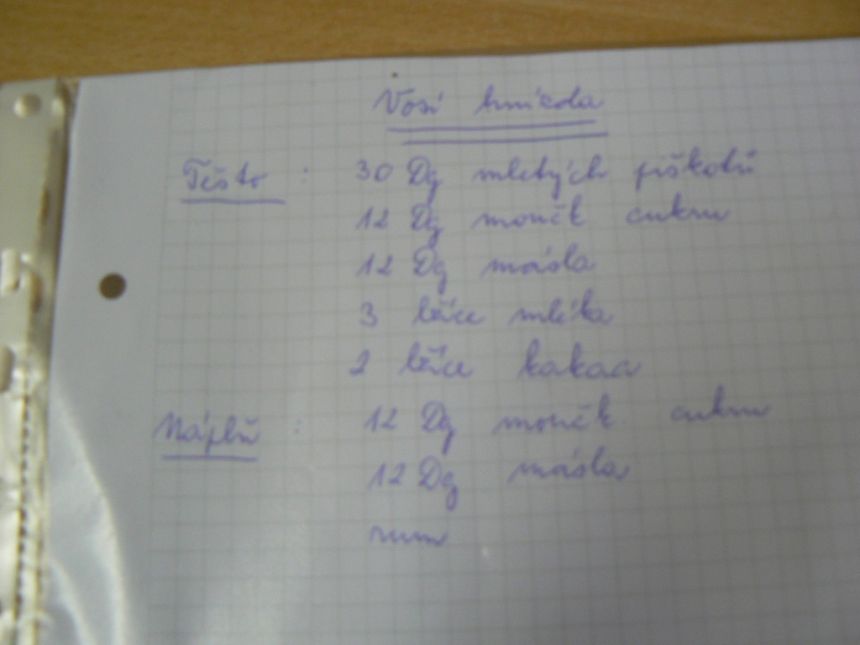 Vosí hnízda
Těsto : 30 Dg mletých piškotů
12 Dg moučk cukru
12 Dg másla
3 lžíce mléka
2 lžíce kakaa
Náplň : 12 Dg moučk. cukru
12 Dg másla
rum